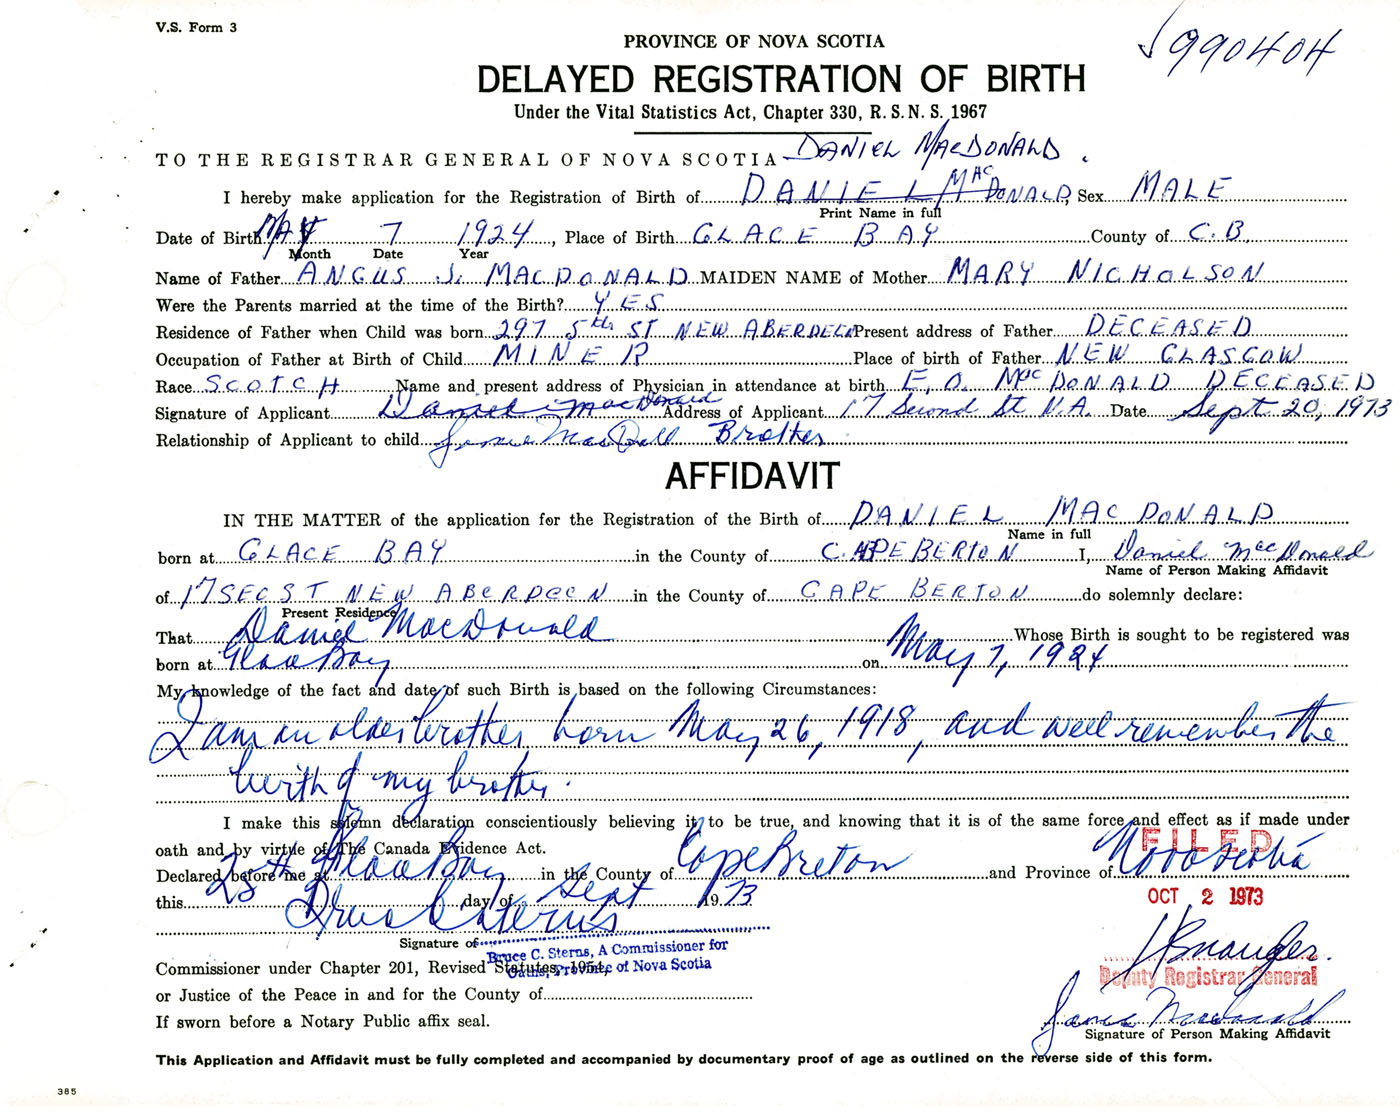 V.S. Form 3
990404
PROVINCE OF NOVA SCOTIA
DELAYED REGISTRATION OF BIRTH
Under the Vital Statistics Act, Chapter 330, R.S.N.S. 1967
TO THE REGISTRAR GENERAL OF NOVA SCOTIA DANIEL MACDONALD.
I hereby make application for the Registration of Birth of DANIEL MACDONALD, Sex MALE
Print Name in full
Date of Birth MAY 7 1924, Place of Birth GLACE BAY County of C.B.
Month Date Year
Name of Father ANGUS J. MACDONALD MAIDEN NAME of Mother MARY NICHOLSON
Were the Parents married at the time of the Birth? YES
Residence of Father when Child was born 297 5th ST NEW ABERDEEN Present address of Father DECEASED
Occupation of Father at Birth of Child MINER Place of birth of Father NEW GLASGOW
Race SCOTCH Name and present address of Physician in attendance at birth E.O. MacDONALD DECEASED
Signature of Applicant Daniel MacDonald Address of Applicant 17 Second St N.A. Date Sept 20, 1973
Relationship of Applicant to child Brother
AFFIDAVIT
IN THE MATTER of the application for the Registration of the Birth of DANIEL MACDONALD
Name in full
born at GLACE BAY in the County of CAPE BERTON I, Daniel MacDonald
Name of Person Making Affidavit
of 17 SEC ST NEW ABERDEEN in the County of CAPE BERTON do solemnly declare:
Present Residence
That Daniel MacDonald Whose Birth is sought to be registered was
born at Glace Bay on May 7, 1924
My knowledge of the fact and date of such Birth is based on the following Circumstances:
I am an older brother, born May 26, 1918, and well remember the
birth of my brother.
I make this solemn declaration conscientiously believing it to be true, and knowing that it is of the same force and effect as if made under
oath and by virtue of The Canada Evidence Act.
FILED
Declared before me at Glace Bay in the County of Cape Breton and Province of Nova Scotia
this 28th day of Sept 1973
OCT 2 1973
Bruce C Sterns
Signature of
Bruce C. Sterns, A Commissioner for
Oaths, Province of Nova Scotia
Commissioner under Chapter 201, Revised Statutes, 1954,
Deputy Registrar General
or Justice of the Peace in and for the County of
James MacDonald
If sworn before a Notary Public affix seal.
Signature of Person Making Affidavit
This Application and Affidavit must be fully completed and accompanied by documentary proof of age as outlined on the reverse side of this form.
385